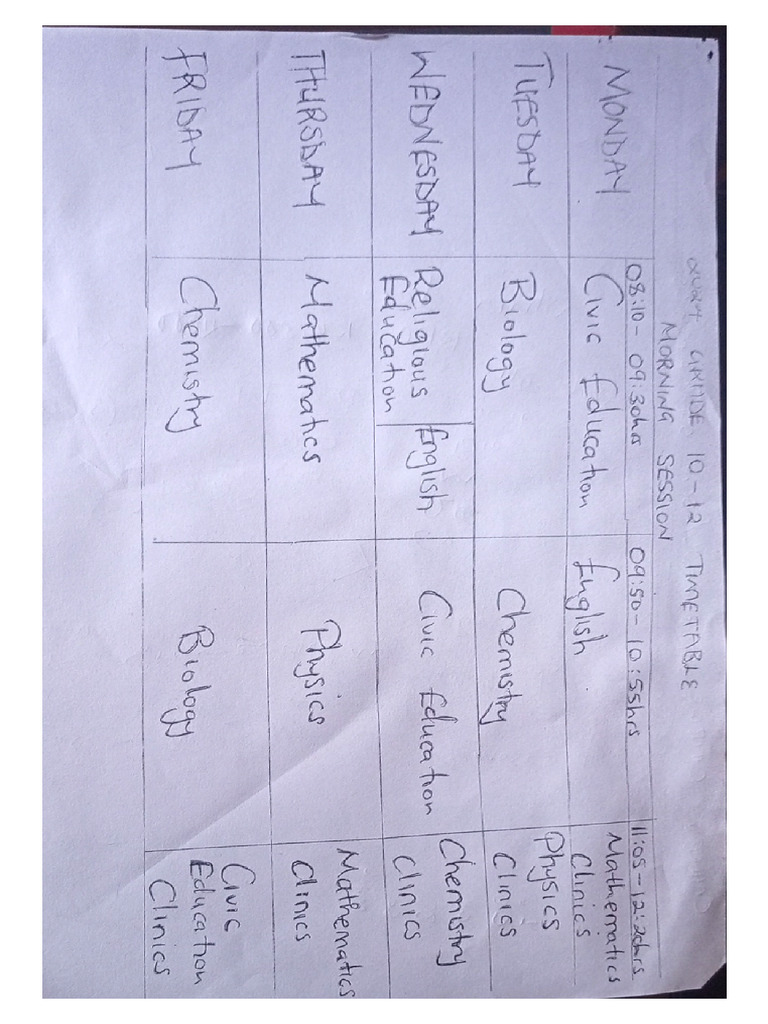 GRADE 10-12 TIMETABLE
MORNING SESSION
08:10 - 09:30hrs 09:50 - 10:55hrs 11:05 - 12:20hrs
MONDAY Civic Education English Mathematics
Clinics
TUESDAY Biology Chemistry Physics
Clinics
WEDNESDAY Religious English Civic Education Chemistry
Education Clinics
THURSDAY Mathematics Physics Mathematics
Clinics
FRIDAY Chemistry Biology Civic
Education
Clinics